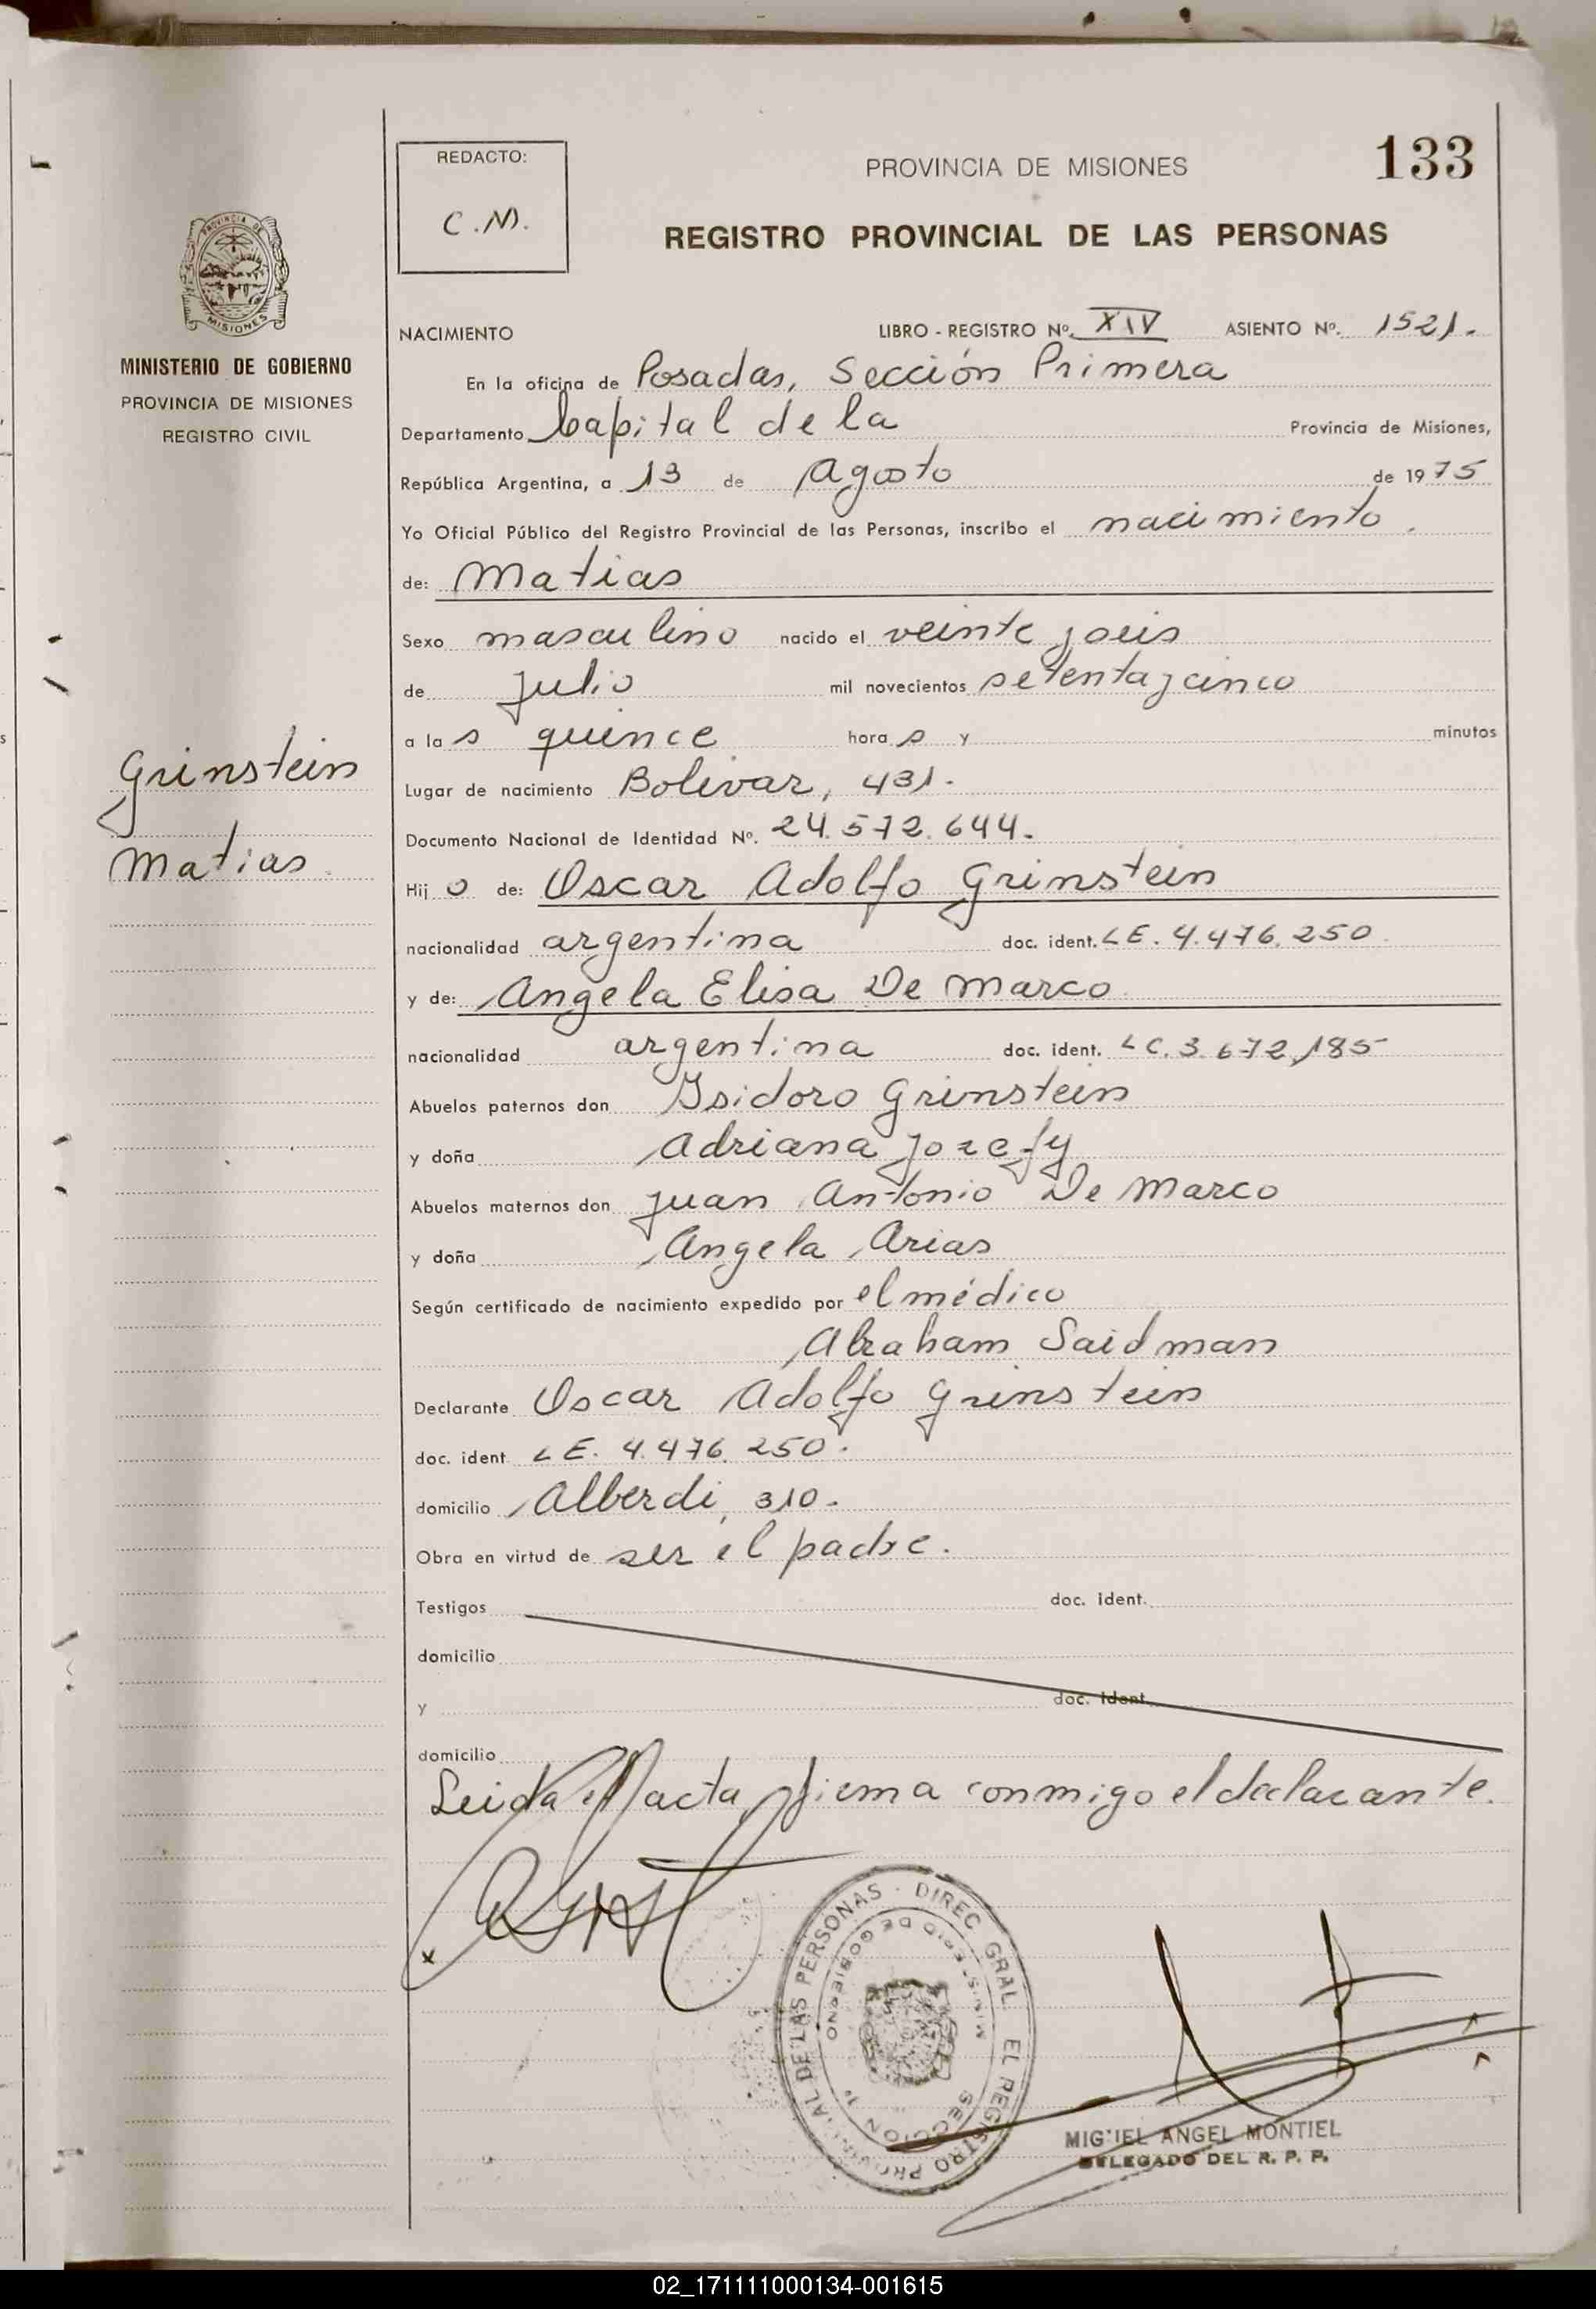 133
REDACTO:
C.N.
PROVINCIA DE MISIONES
REGISTRO PROVINCIAL DE LAS PERSONAS
PROVINCIA DE
MISIONES
MINISTERIO DE GOBIERNO
PROVINCIA DE MISIONES
REGISTRO CIVIL
Grinstein
Matias
NACIMIENTO LIBRO - REGISTRO Nº. XIV ASIENTO Nº. 1521.
En la oficina de Posadas, Sección Primera
Departamento Capital de la Provincia de Misiones,
República Argentina, a 13 de Agosto de 1975
Yo Oficial Público del Registro Provincial de las Personas, inscribo el nacimiento
de: Matias
Sexo masculino nacido el veinte y seis
de Julio mil novecientos setenta y cinco
a la s quince hora s y minutos
Lugar de nacimiento Bolivar, 431.
Documento Nacional de Identidad Nº. 24.572.644.
Hij o de: Oscar Adolfo Grinstein
nacionalidad argentina doc. ident. LE. 4.476.250
y de: Angela Elisa De Marco
nacionalidad argentina doc. ident. LC. 3.672,185
Abuelos paternos don Isidoro Grinstein
y doña Adriana Jozefy
Abuelos maternos don Juan Antonio De Marco
y doña Angela Arias
Según certificado de nacimiento expedido por el médico
Abraham Saidman
Declarante Oscar Adolfo Grinstein
doc. ident LE. 4.476.250.
domicilio Alberdi, 310.
Obra en virtud de ser el padre.
Testigos doc. ident.
domicilio
y doc. ident.
domicilio
Leida el acta, firma conmigo el declarante.
DIREC. GRAL. EL REGISTRO PROVINCIAL DE LAS PERSONAS
MINISTERIO DE GOBIERNO
SECCION 1ª
MIGUEL ANGEL MONTIEL
DELEGADO DEL R. P. P.
02_171111000134-001615